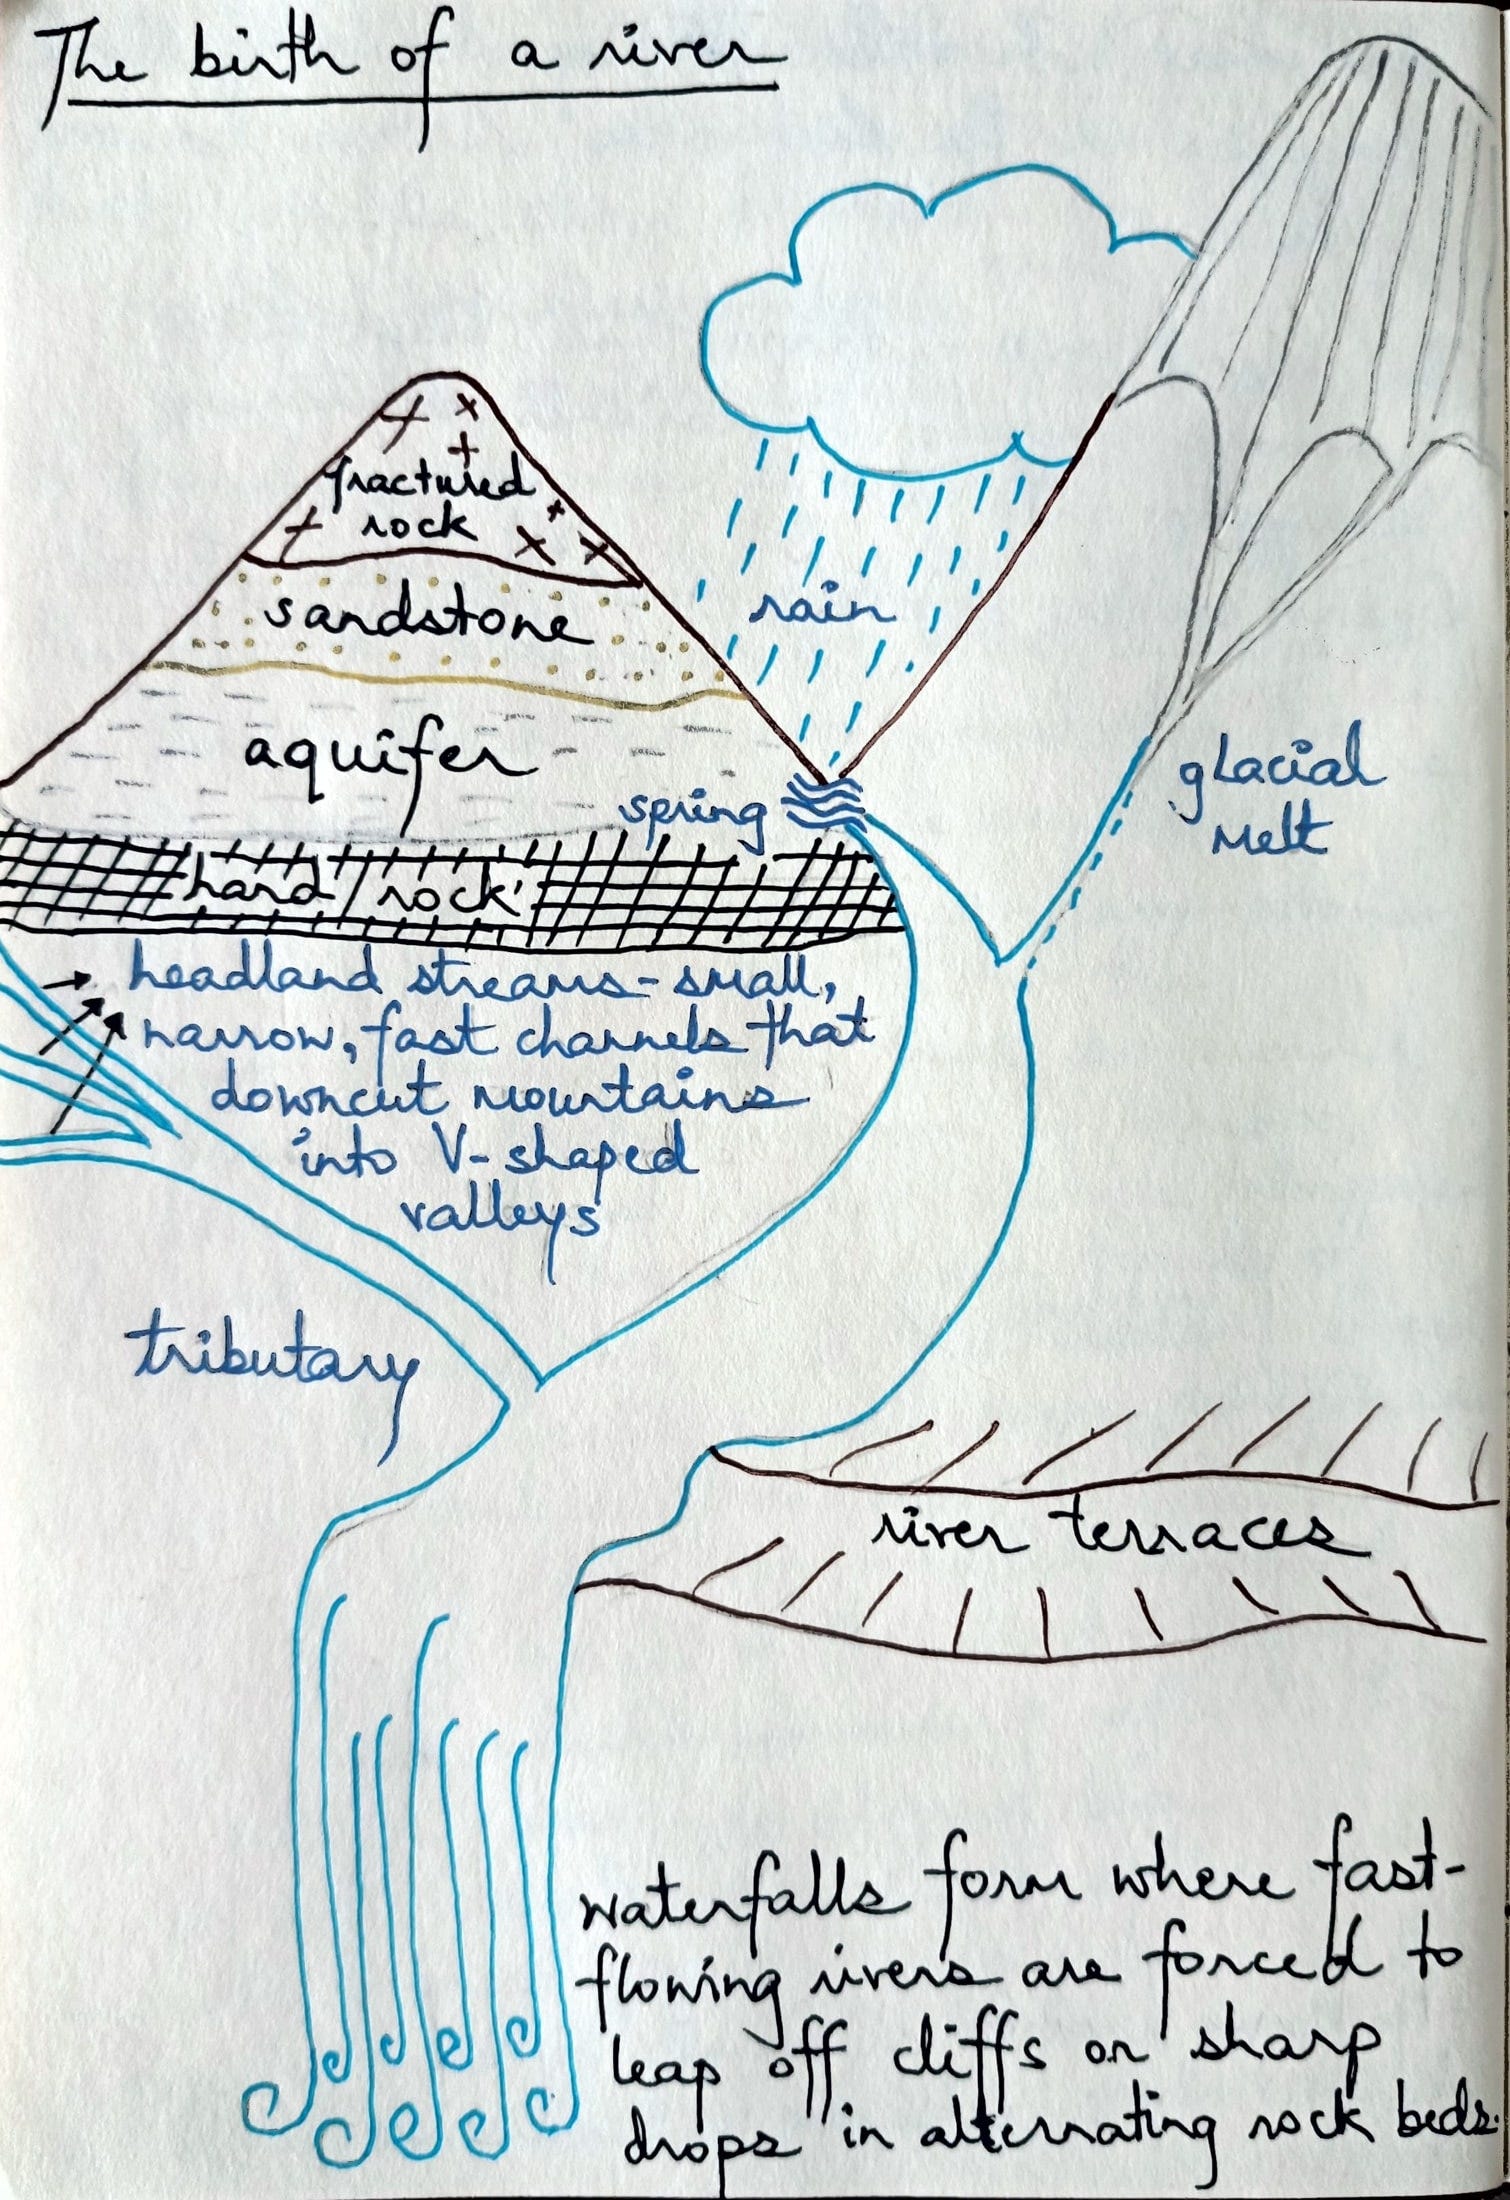 The birth of a river
fractured
rock
sandstone
aquifer
hard rock
rain
spring
glacial
melt
headland streams - small,
narrow, fast channels that
downcut mountains
into V-shaped
valleys
tributary
river terraces
waterfalls form where fast-
flowing rivers are forced to
leap off cliffs or sharp
drops in alternating rock beds.